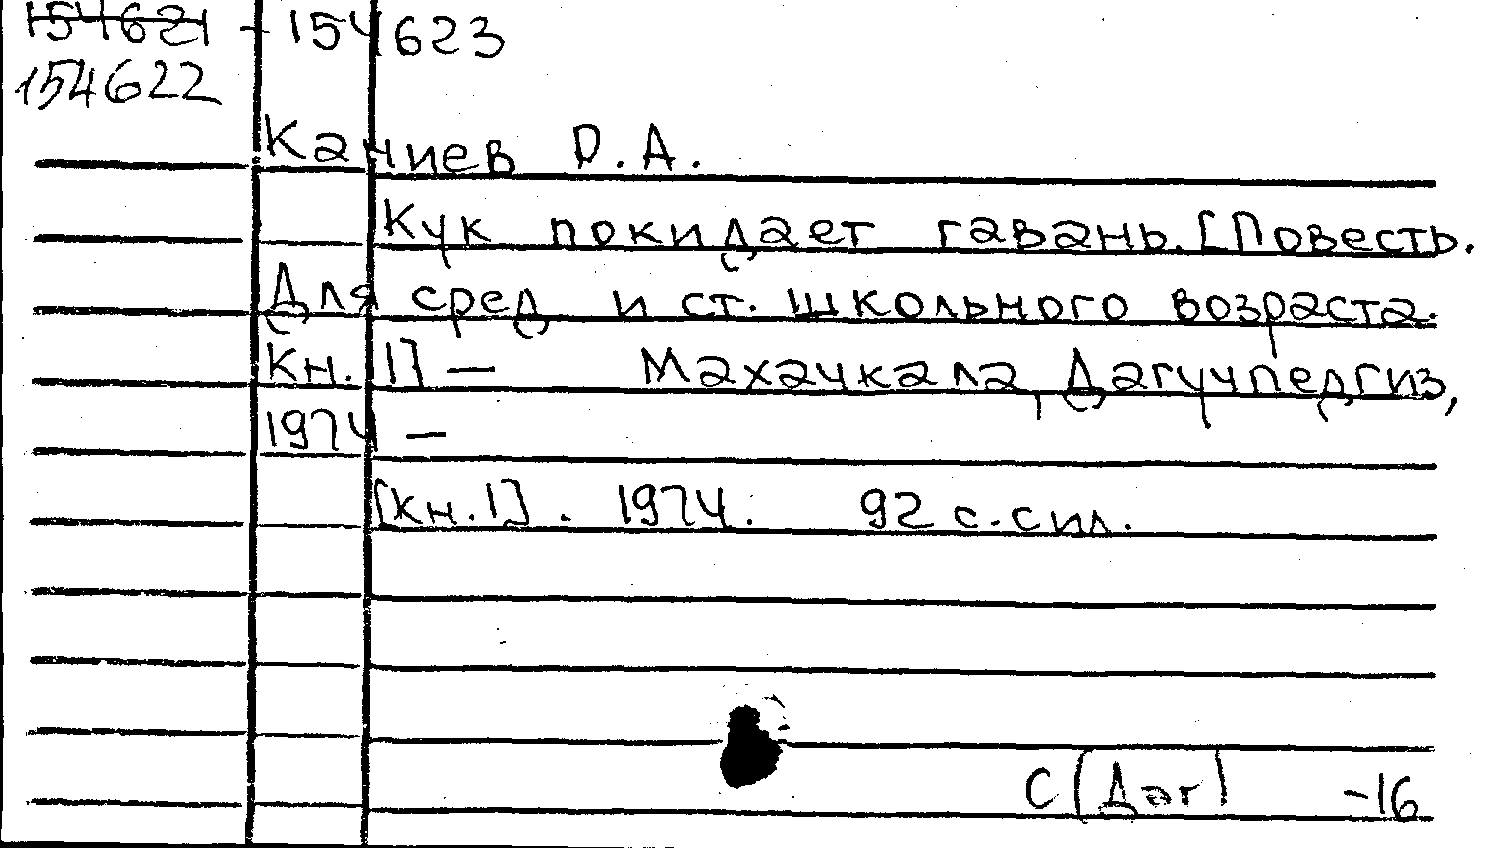 154621 - 154623
154622
Каниев Р.А.
Кук покидает гавань. [Повесть.
Для сред и ст. школьного возраста.
Кн. 1] — Махачкала, Дагучпедгиз,
1974 —
[кн. 1]. 1974. 92 с. с ил.
С(Даг) -16